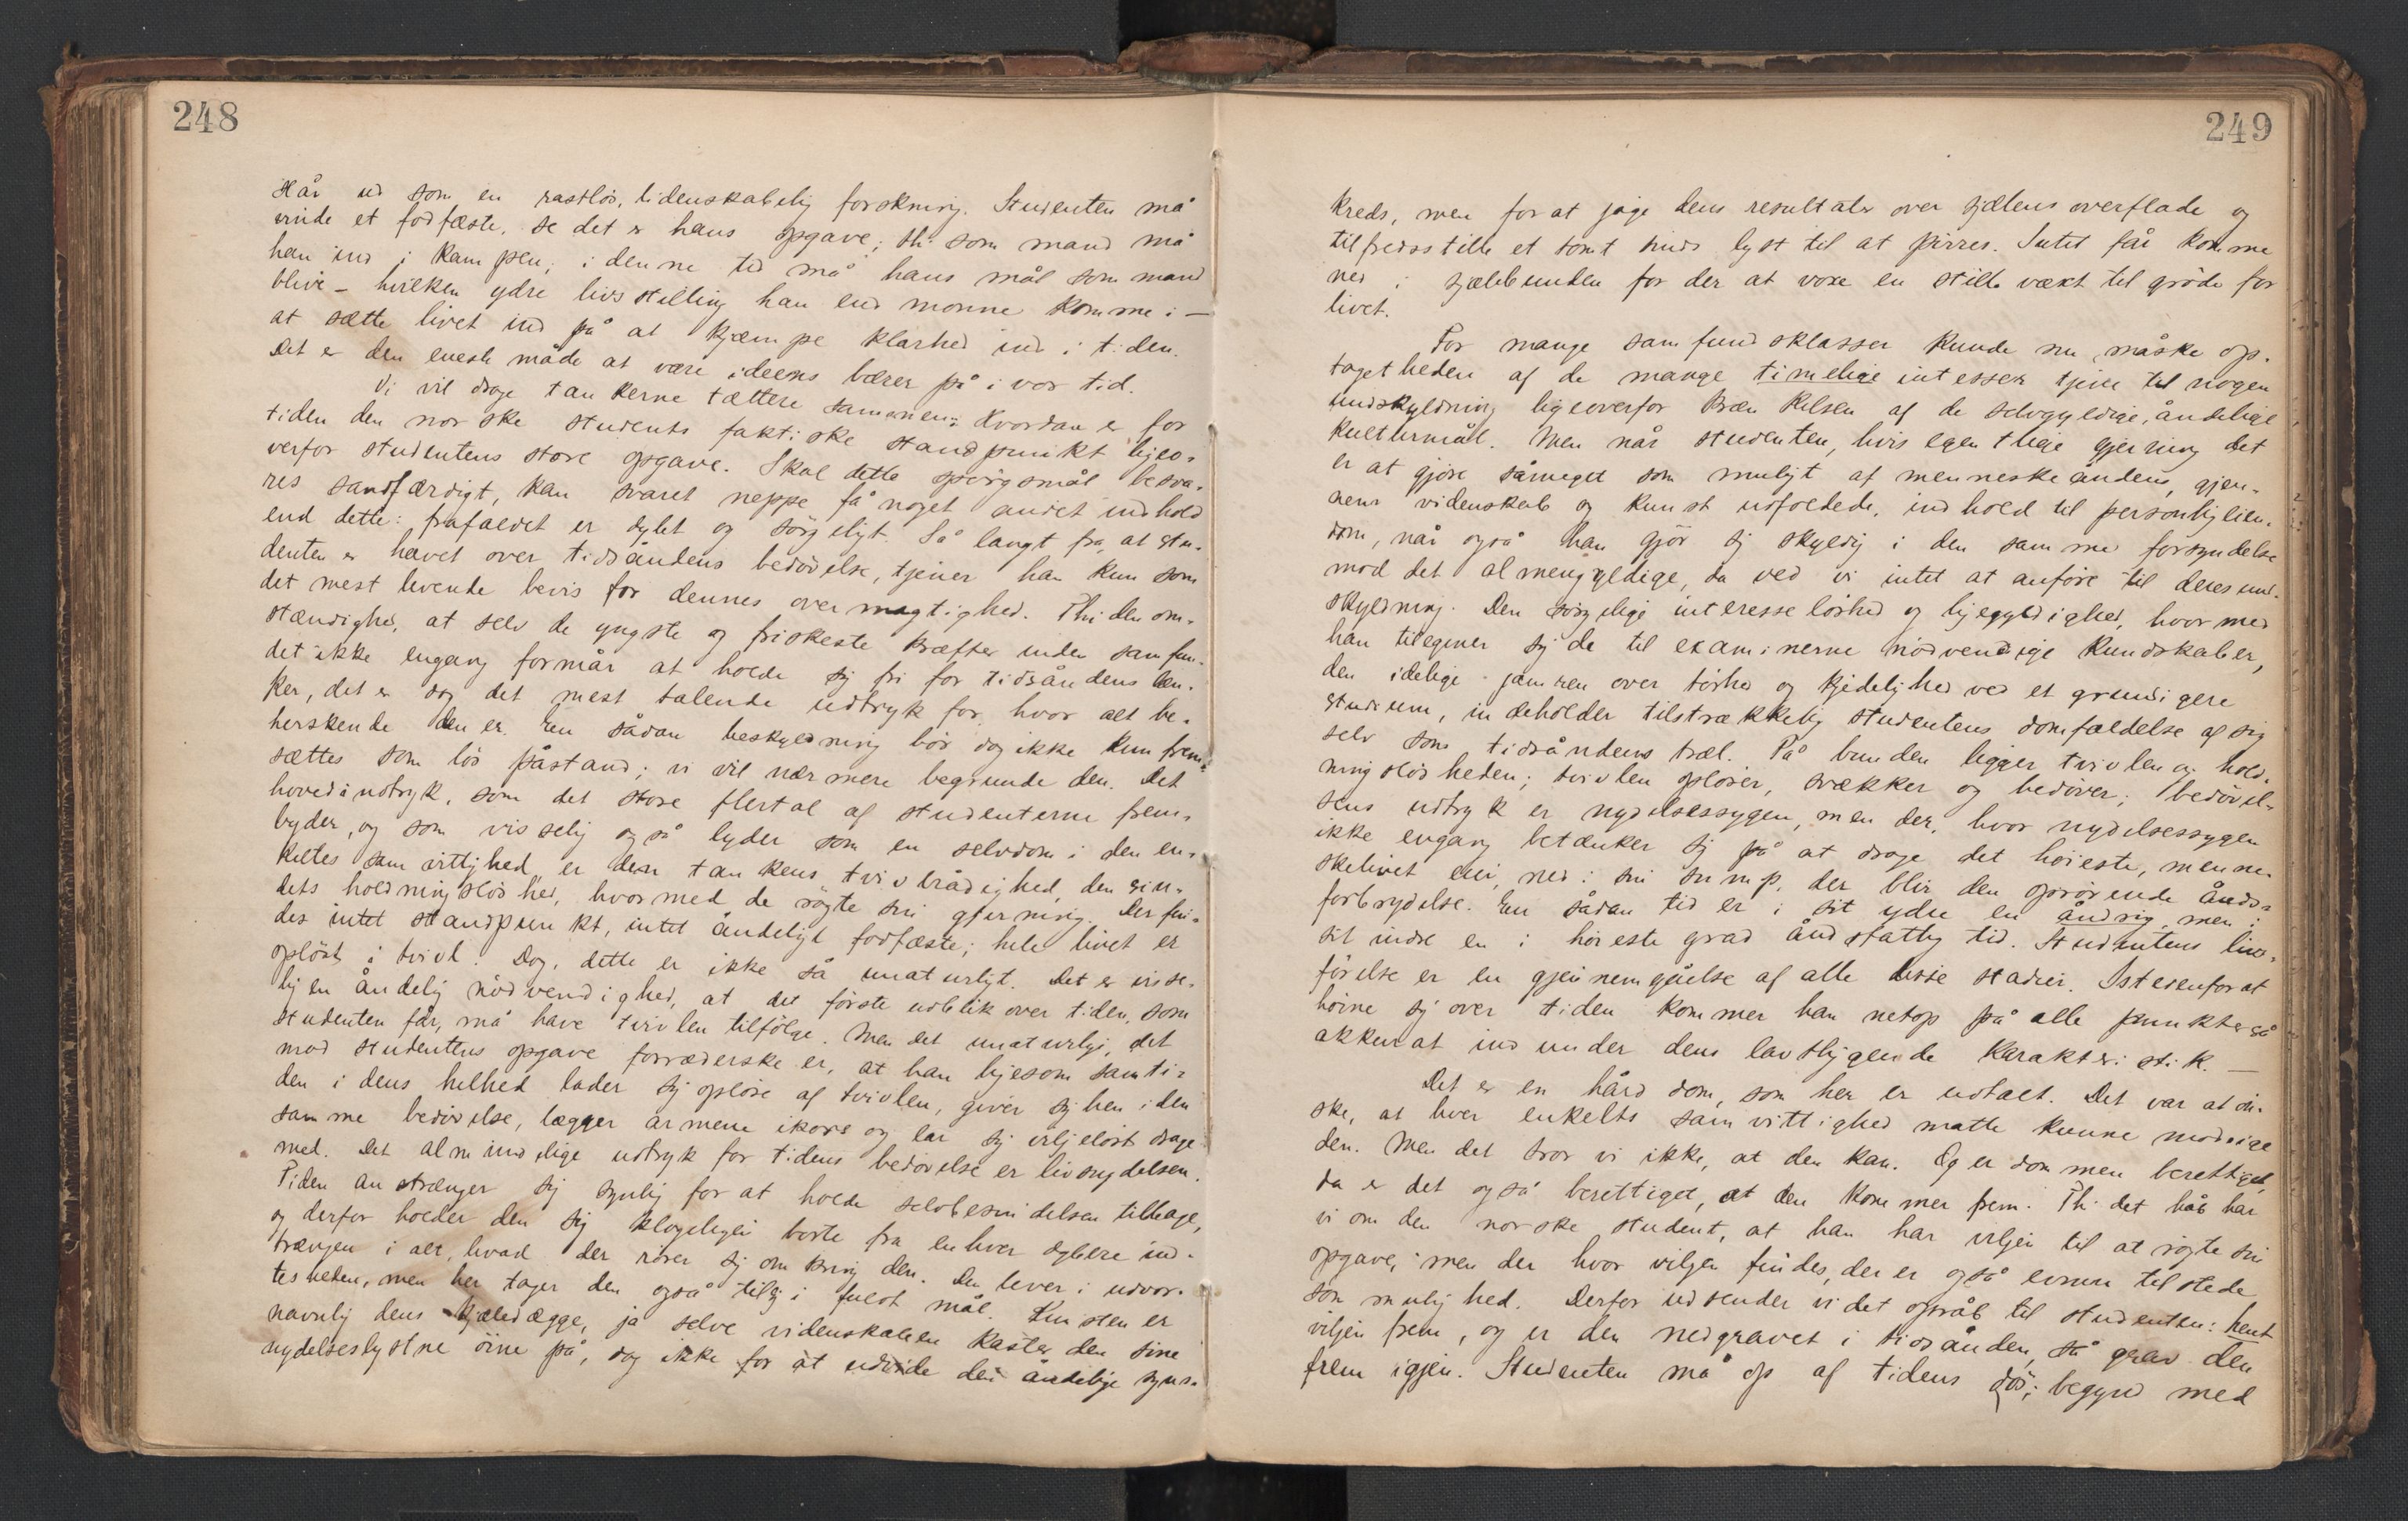 248
slår ud som en rastløs, lidenskabelig forskning. Studenten må
vinde et fodfæste, se det er hans opgave; thi som mand må
han ind i kampen; i denne tid må hans mål som mand
blive – hvilken ydre livsstilling han end monne komme i –
at sætte livet ind på at kjæmpe klarhed ind i tiden.
Det er den eneste måde at være ideens bærer på i vor tid.
Vi vil drage tankerne tættere sammen: Hvordan er for
tiden den norske students faktiske standpunkt ligeo-
verfor studentens store opgave. Skal dette spørgsmål besva-
res sandfærdigt, kan svaret neppe få noget andet indhold
end dette: frafaldet er dybt og sørgeligt. Så langt fra, at stu-
denten er hævet over tidsåndens bedøvelse, tjener han kun som
det mest levende bevis for dennes overmagtighed. Thi den om-
stændighed, at selv de yngste og friskeste kræfter inden samfun-
det ikke engang formår at holde sig fri for tidsåndens læn-
ker, det er dog det mest talende udtryk for, hvor alt be-
herskende den er. En sådan beskyldning bør dog ikke kun frem-
sættes som løs påstand; vi vil nærmere begrunde den. Det
hovedindtryk, som det store flertal af studenterne frem-
byder, og som visselig også lyder som en selvdom i den en-
keltes samvittighed, er den tankens tvivlrådighed, den sin-
dets holdningsløshed, hvormed de røgte sin gjerning. Der fin-
des intet standpunkt, intet åndeligt fodfæste; hele livet er
opløst i tvivl. Dog, dette er ikke så unaturligt. Det er visse-
lig en åndelig nødvendighed, at det første udblik over tiden, som
studenten får, må have tvivlen tilfølge. Men det unaturlige, det
mod studentens opgave forræderske er, at han ligesom samti-
den i dens helhed lader sig opløse af tvivlen, giver sig hen i den
samme bedøvelse, lægger armene ikors og lar sig viljeløst drage
med. Det almindelige udtryk for tidens bedøvelse er livsnydelsen.
Tiden anstrænger sig synlig for at holde selvbesindelsen tilbage,
og derfor holder den sig klogeligen borte fra enhver dybere ind-
trængen i alt, hvad der rører sig omkring den. Den lever i udvor-
tesheden, men her tager den også til sig i fuldt mål. Kunsten er
navnlig dens kjæledægge, ja selve videnskaben kaster den sine
nydelseslystne øine på, dog ikke for at udvide den åndelige syns-
249
kreds, men for at jage dens resultater over sjælens overflade og
tilfredsstille et tomt sinds lyst til at pirres. Intet får komme
ned i sjælebunden for der at voxe en stille vækt til grøde for
livet.
For mange samfundsklasser kunde nu måske op-
tagetheden af de mange timelige intesser tjene til nogen
undskyldning ligeoverfor krænkelsen af de selvgyldige, åndelige
kulturmål. Men når studenten, hvis egentlige gjerning det
er at gjøre såmeget som muligt af menneskeåndens, gjen-
nem videnskab og kunst udfoldede, indhold til personlig eien-
dom, når også han gjør sig skyldig i den samme forsyndelse
mod det almengyldige, da ved vi intet at anføre til deres und-
skyldning. Den sørgelige interesseløshed og ligegyldighed, hvormed
han tilegner sig de til examinerne nødvendige kundskaber,
den idelige jamren over tørhed og kjedelighed ved et grundigere
studium, indeholder tilstrækkelig studentens domfældelse af sig
selv som tidsåndens træl. På bunden ligger tvivlen og hold-
ningsløsheden; tvivlen opløser, svækker og bedøver; bedøvel-
sens udtryk er nydelsessygen, men der, hvor nydelsessygen
ikke engang betænker sig på at drage det høieste, menne-
skelivet eier, ned i sin sump, der blir den oprørende ånds-
forbrydelse. En sådan tid er i sit ydre en åndrig, men i
sit indre en i høieste grad åndsfattig tid. Studentens livs-
førelse er en gjennemgåelse af alle disse stadier. Istedenfor at
høine sig over tiden kommer han netop på alle punkter så
akkurat ind under dens lavtliggende karakteristik. –
Det er en hård dom, som her er udtalt. Det var at øn-
ske, at hver enkelts samvittighed måtte kunne modsige
den. Men det tror vi ikke, at den kan. Og er dommen berettiget,
da er det også berettiget, at den kommer frem. Thi det håb har
vi om den norske student, at han har viljen til at røgte sin
opgave; men der hvor viljen findes, der er også evnen tilstede
som mulighed. Derfor udsender vi det opråb til studenten: hent
viljen frem, og er den nedgravet i tidsånden, så grav den
frem igjen. Studenten må op af tidens døs; begynd med